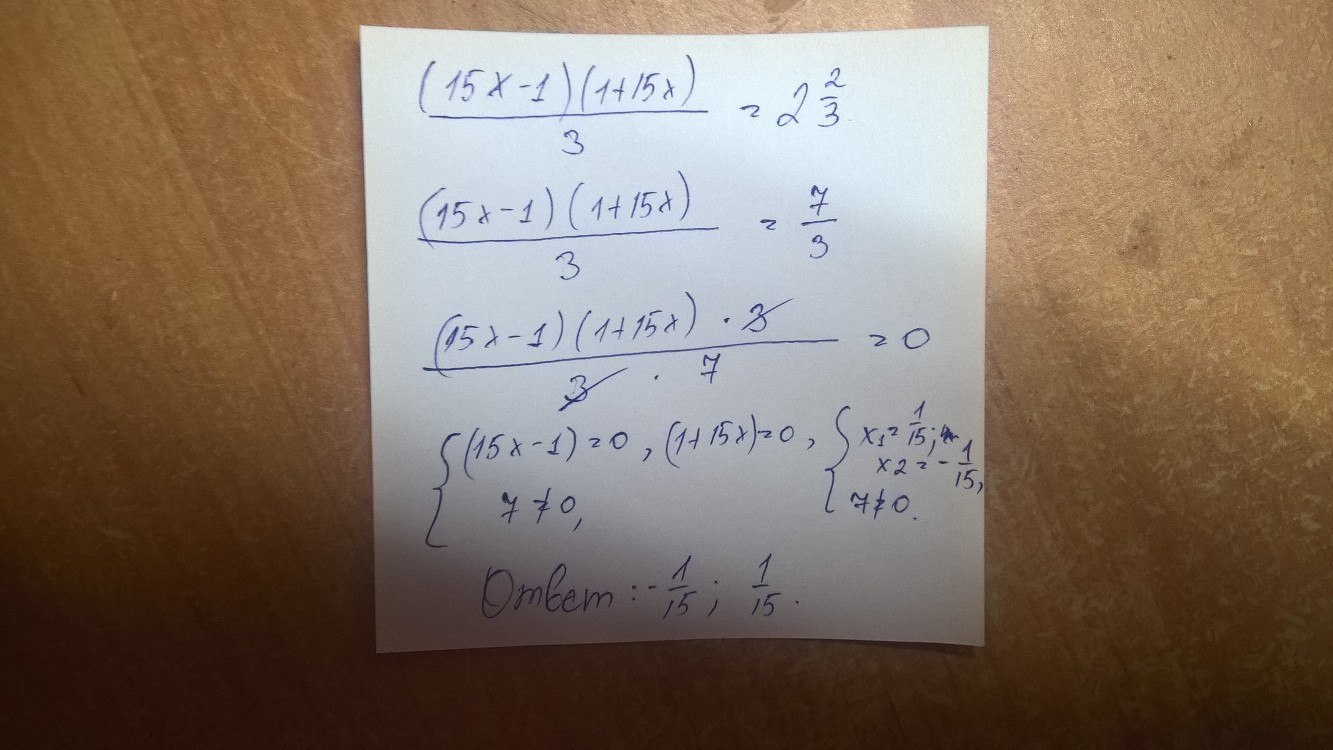 (15x-1)(1+15x)/3 = 2 2/3
(15x-1)(1+15x)/3 = 7/3
(15x-1)(1+15x)·3/3·7 = 0
{(15x-1)=0, (1+15x)=0, {x1=1/15; x2=-1/15,
7≠0, 7≠0.
Ответ: -1/15; 1/15.